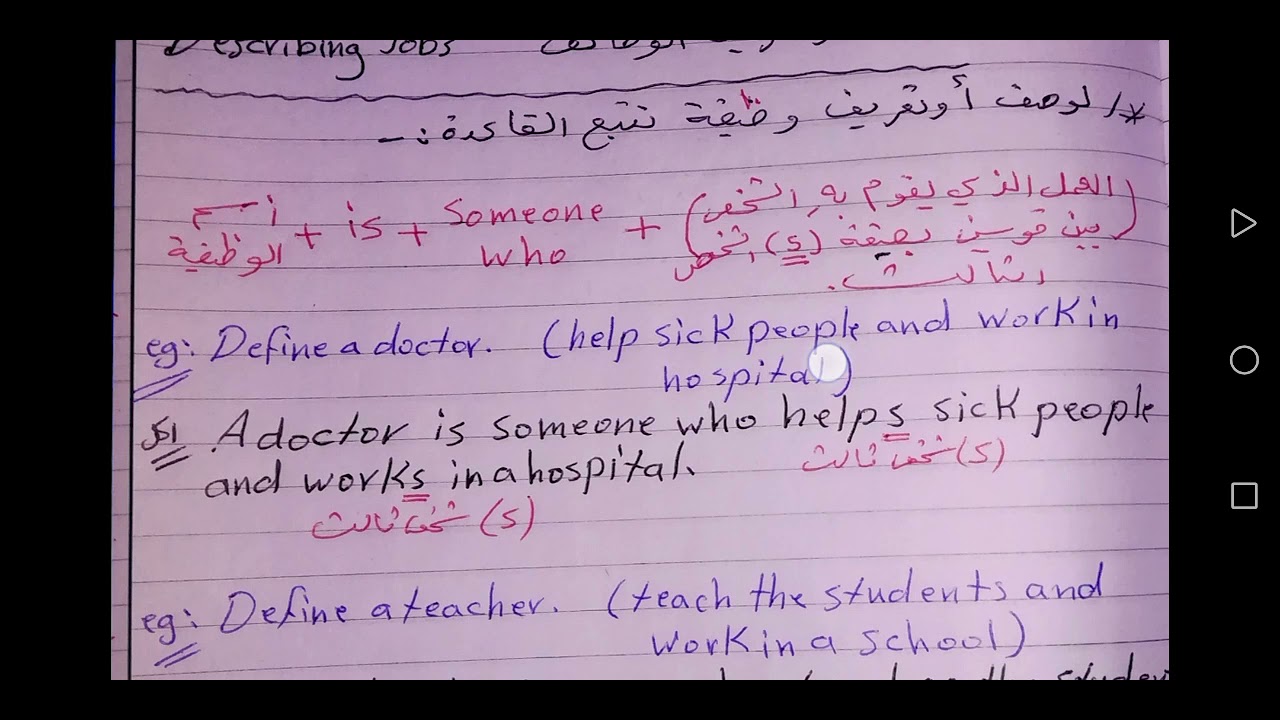 Describing Jobs
*/ لوصف أو تعريف وظيفة نتبع القاعدة :-
اسم الوظيفة + is + Someone who + (العمل الذي يقوم به الشخص
بين قوسين بصيغة (s) الشخص
الثالث.
eg: Define a doctor. (help sick people and work in
hospital)
A doctor is someone who helps sick people
(s) شخص ثالث
and works in a hospital.
(s) شخص ثالث
eg: Define a teacher. (teach the students and
work in a school)